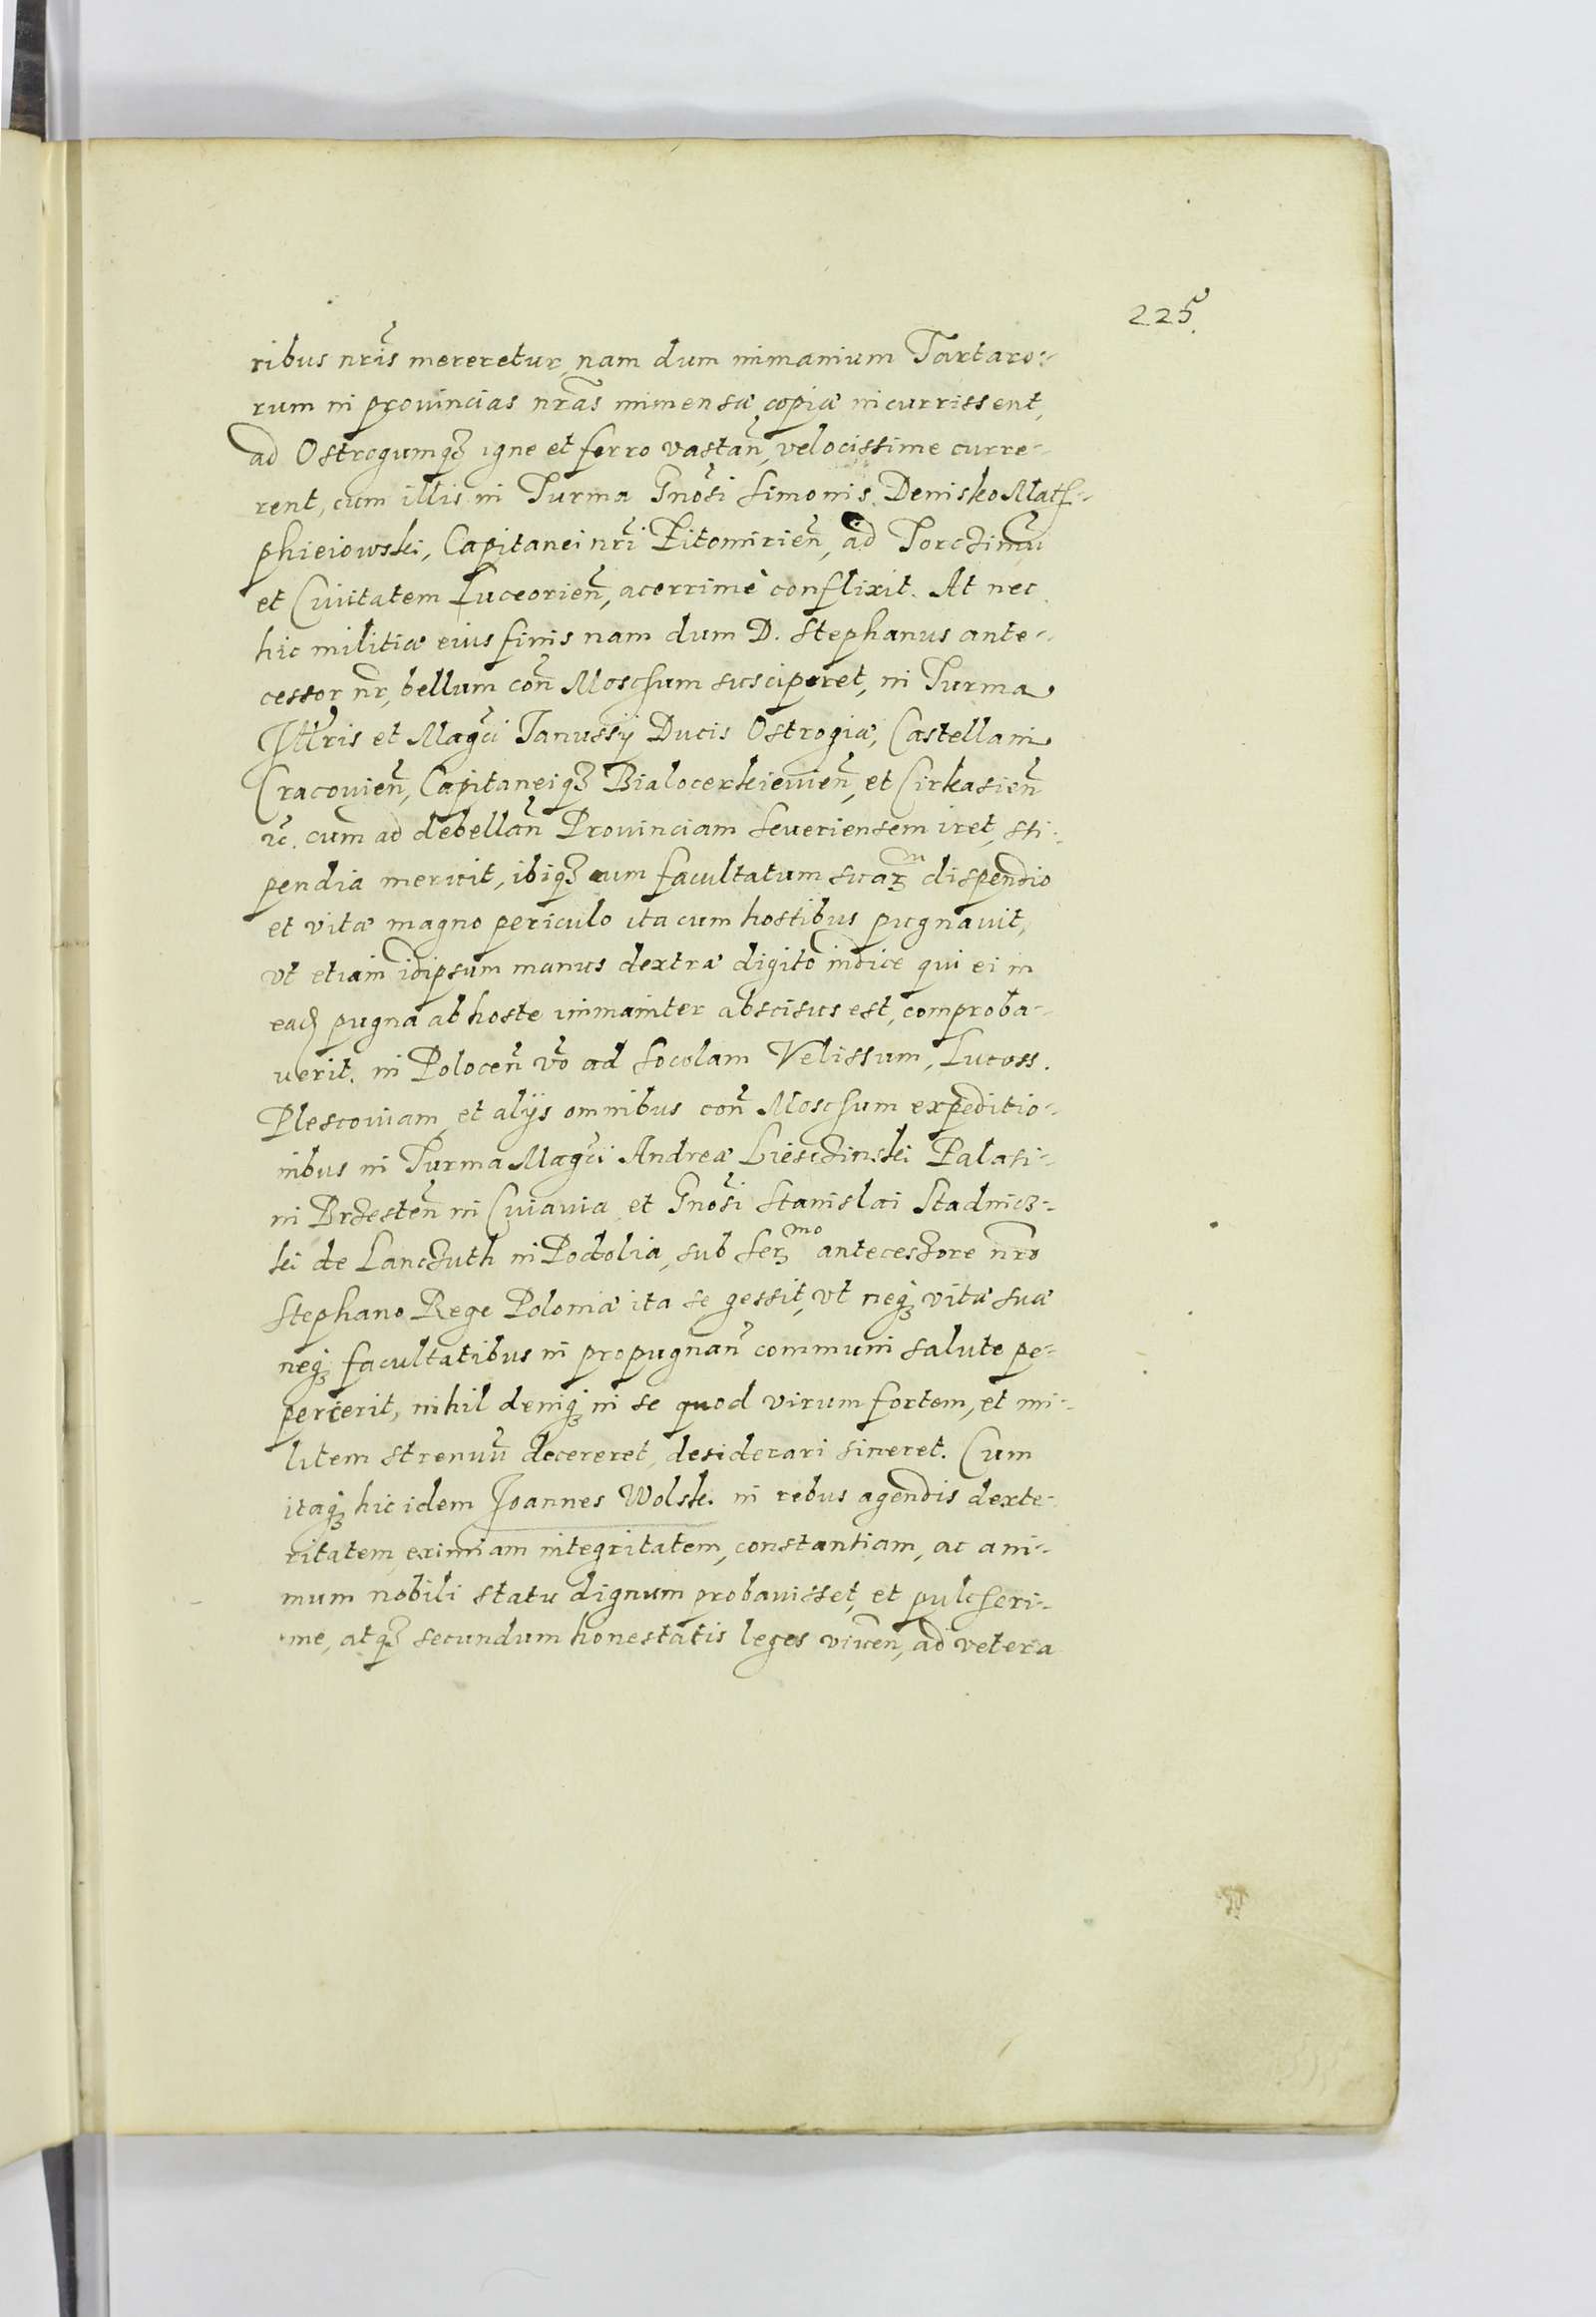 225.
ribus nris̃ mereretur, nam dum immanium Tartaro-
rum in prouincias nrãs immensæ copiæ incurrissent,
ad Ostrogumq₃ igne et ferro vastañ, velocissime curre-
rent, cum illis in Turma Gnosi Simonis Denisko Math-
phieiowski, Capitanei nri Zitomirieñ, ad Torczinũ
et Ciuitatem Luceorieñ, acerrimè conflixit. At nec
hic militiæ eius finis nam dum D. Stephanus ante-
cessor nr̃, bellum coñ Moschum susciperet, in Turma
Illris et Magci Janussij Ducis Ostrogiæ, Castellani
Cracouieñ, Capitaneiq₃ Bialocerkieuieñ, et Cirkasieñ
ꝛc̃. cum ad debellañ Prouinciam Seueriensem iret, sti-
pendia meruit, ibiq₃ cum facultatum suaꝝ dispendio
et vitæ magno periculo ita cum hostibus pugnauit,
vt etiam idipsum manus dextræ digito indice qui ei in
eaḍ pugna ab hoste immaniter abscisus est, comproba-
uerit. in Poloceñ võ ad Socolam Velissum, Lucoss.
Plescouiam, et alijs omnibus coñ Moschum expeditio-
nibus in Turma Magci Andreæ Liesczinski Palati-
ni Brzesteñ in Cuiauia, et Gnosi Stanislai Stadnicz-
ki de Lanczuth in Podolia, sub Serᵐᵒ antecessore nrõ
Stephano Rege Poloniæ ita se gessit, vt neq₃ vitæ suæ
neq₃ facultatibus in propugnañ communi salute pe-
percerit, nihil deniq₃ in se quod virum fortem, et mi-
litem strenuũ decereret, desiderari sineret. Cum
itaq₃ hic idem Joannes Wolsk. in rebus agendis dexte-
ritatem, eximiam integritatem, constantiam, ac ani-
mum nobili statu dignum probauisset, et pulcheri-
me, atq₃ secundum honestatis leges viueñ, ad vetera